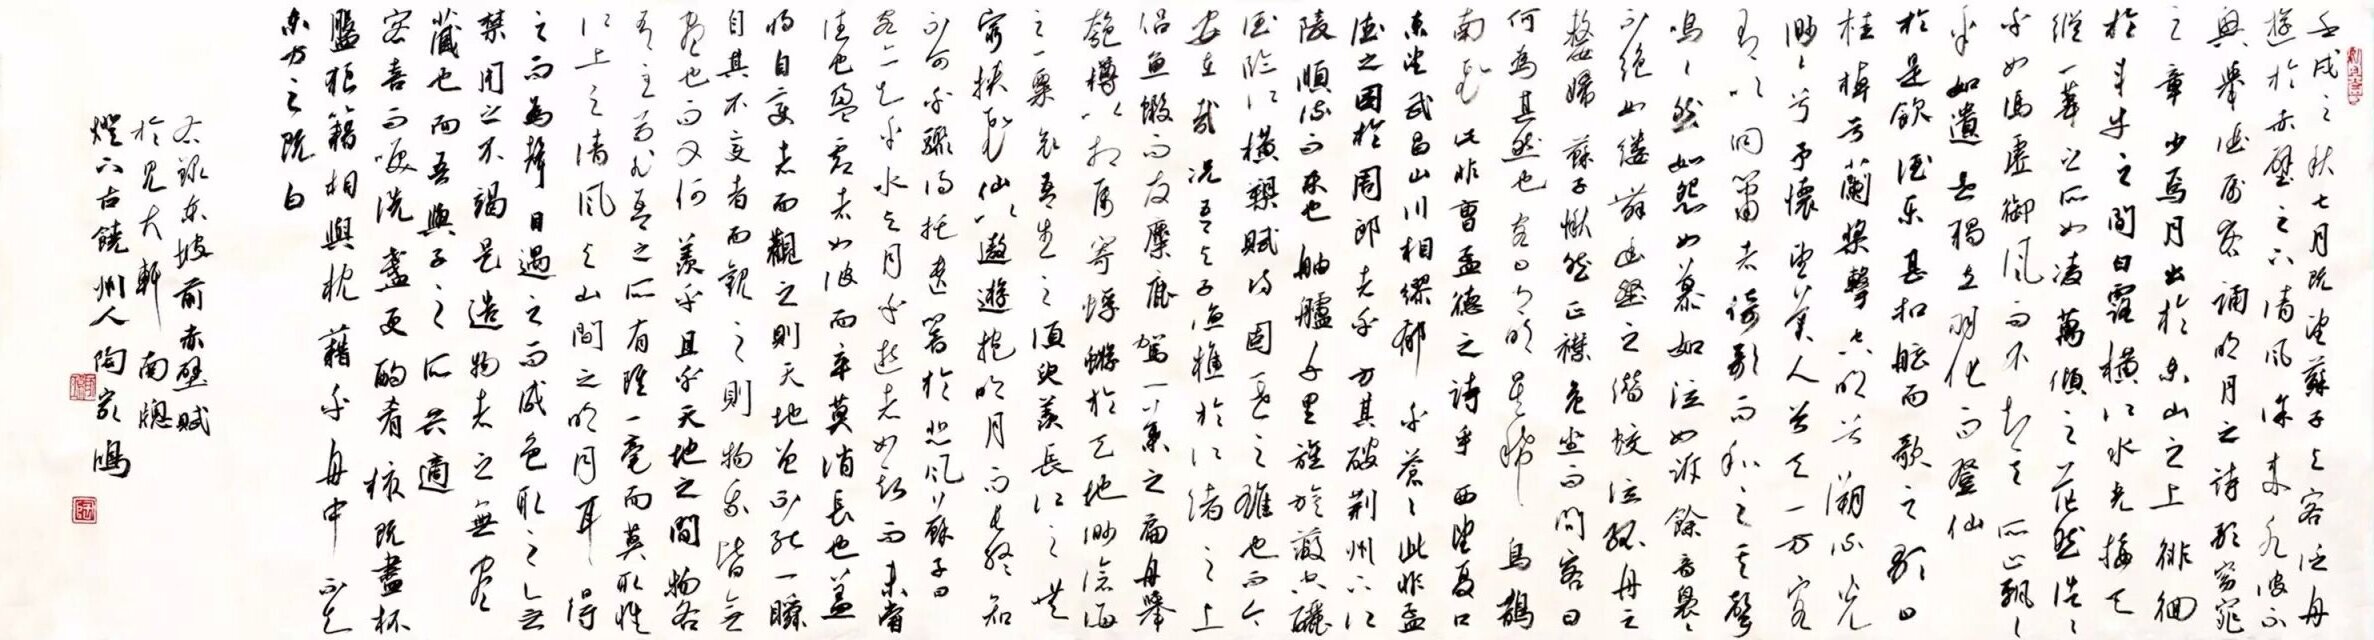 壬戌之秋七月既望蘇子與客泛舟
遊於赤壁之下清風徐來水波不
興舉酒屬客誦明月之詩歌窈窕
之章少焉月出於東山之上徘徊
於斗牛之間白露橫江水光接天
縱一葦之所如凌萬頃之茫然浩浩
乎如馮虛御風而不知其所止飄飄
乎如遺世獨立羽化而登仙
於是飲酒樂甚扣舷而歌之歌曰
桂棹兮蘭槳擊空明兮溯流光
渺渺兮予懷望美人兮天一方客
有吹洞簫者倚歌而和之其聲
嗚嗚然如怨如慕如泣如訴餘音裊裊
不絕如縷舞幽壑之潛蛟泣孤舟之
嫠婦蘇子愀然正襟危坐而問客曰
何為其然也客曰月明星稀烏鵲
南飛此非曹孟德之詩乎西望夏口
東望武昌山川相繆郁乎蒼蒼此非孟
德之困於周郎者乎方其破荆州下江
陵順流而東也舳艫千里旌旗蔽空釃
酒臨江橫槊賦詩固一世之雄也而今
安在哉況吾與子漁樵於江渚之上
侶魚蝦而友麋鹿駕一葉之扁舟舉
匏樽以相屬寄蜉蝣於天地渺滄海
之一粟哀吾生之須臾羨長江之無
窮挾飛仙以遨遊抱明月而長終知
不可乎驟得托遺響於悲風蘇子曰
客亦知乎水與月乎逝者如斯而未嘗
往也盈虛者如彼而卒莫消長也蓋
將自其變者而觀之則天地曾不能一瞬
自其不變者而觀之則物與我皆無
盡也而又何羨乎且夫天地之間物各
有主苟非吾之所有雖一毫而莫取惟
江上之清風與山間之明月耳得
之而為聲目遇之而成色取之無
禁用之不竭是造物者之無盡
藏也而吾與子之所共適
客喜而笑洗盞更酌肴核既盡杯
盤狼籍相與枕藉乎舟中不知
東方之既白
右錄東坡前赤壁賦
於見大軒南窗
燈下古饒州人陶家鴻